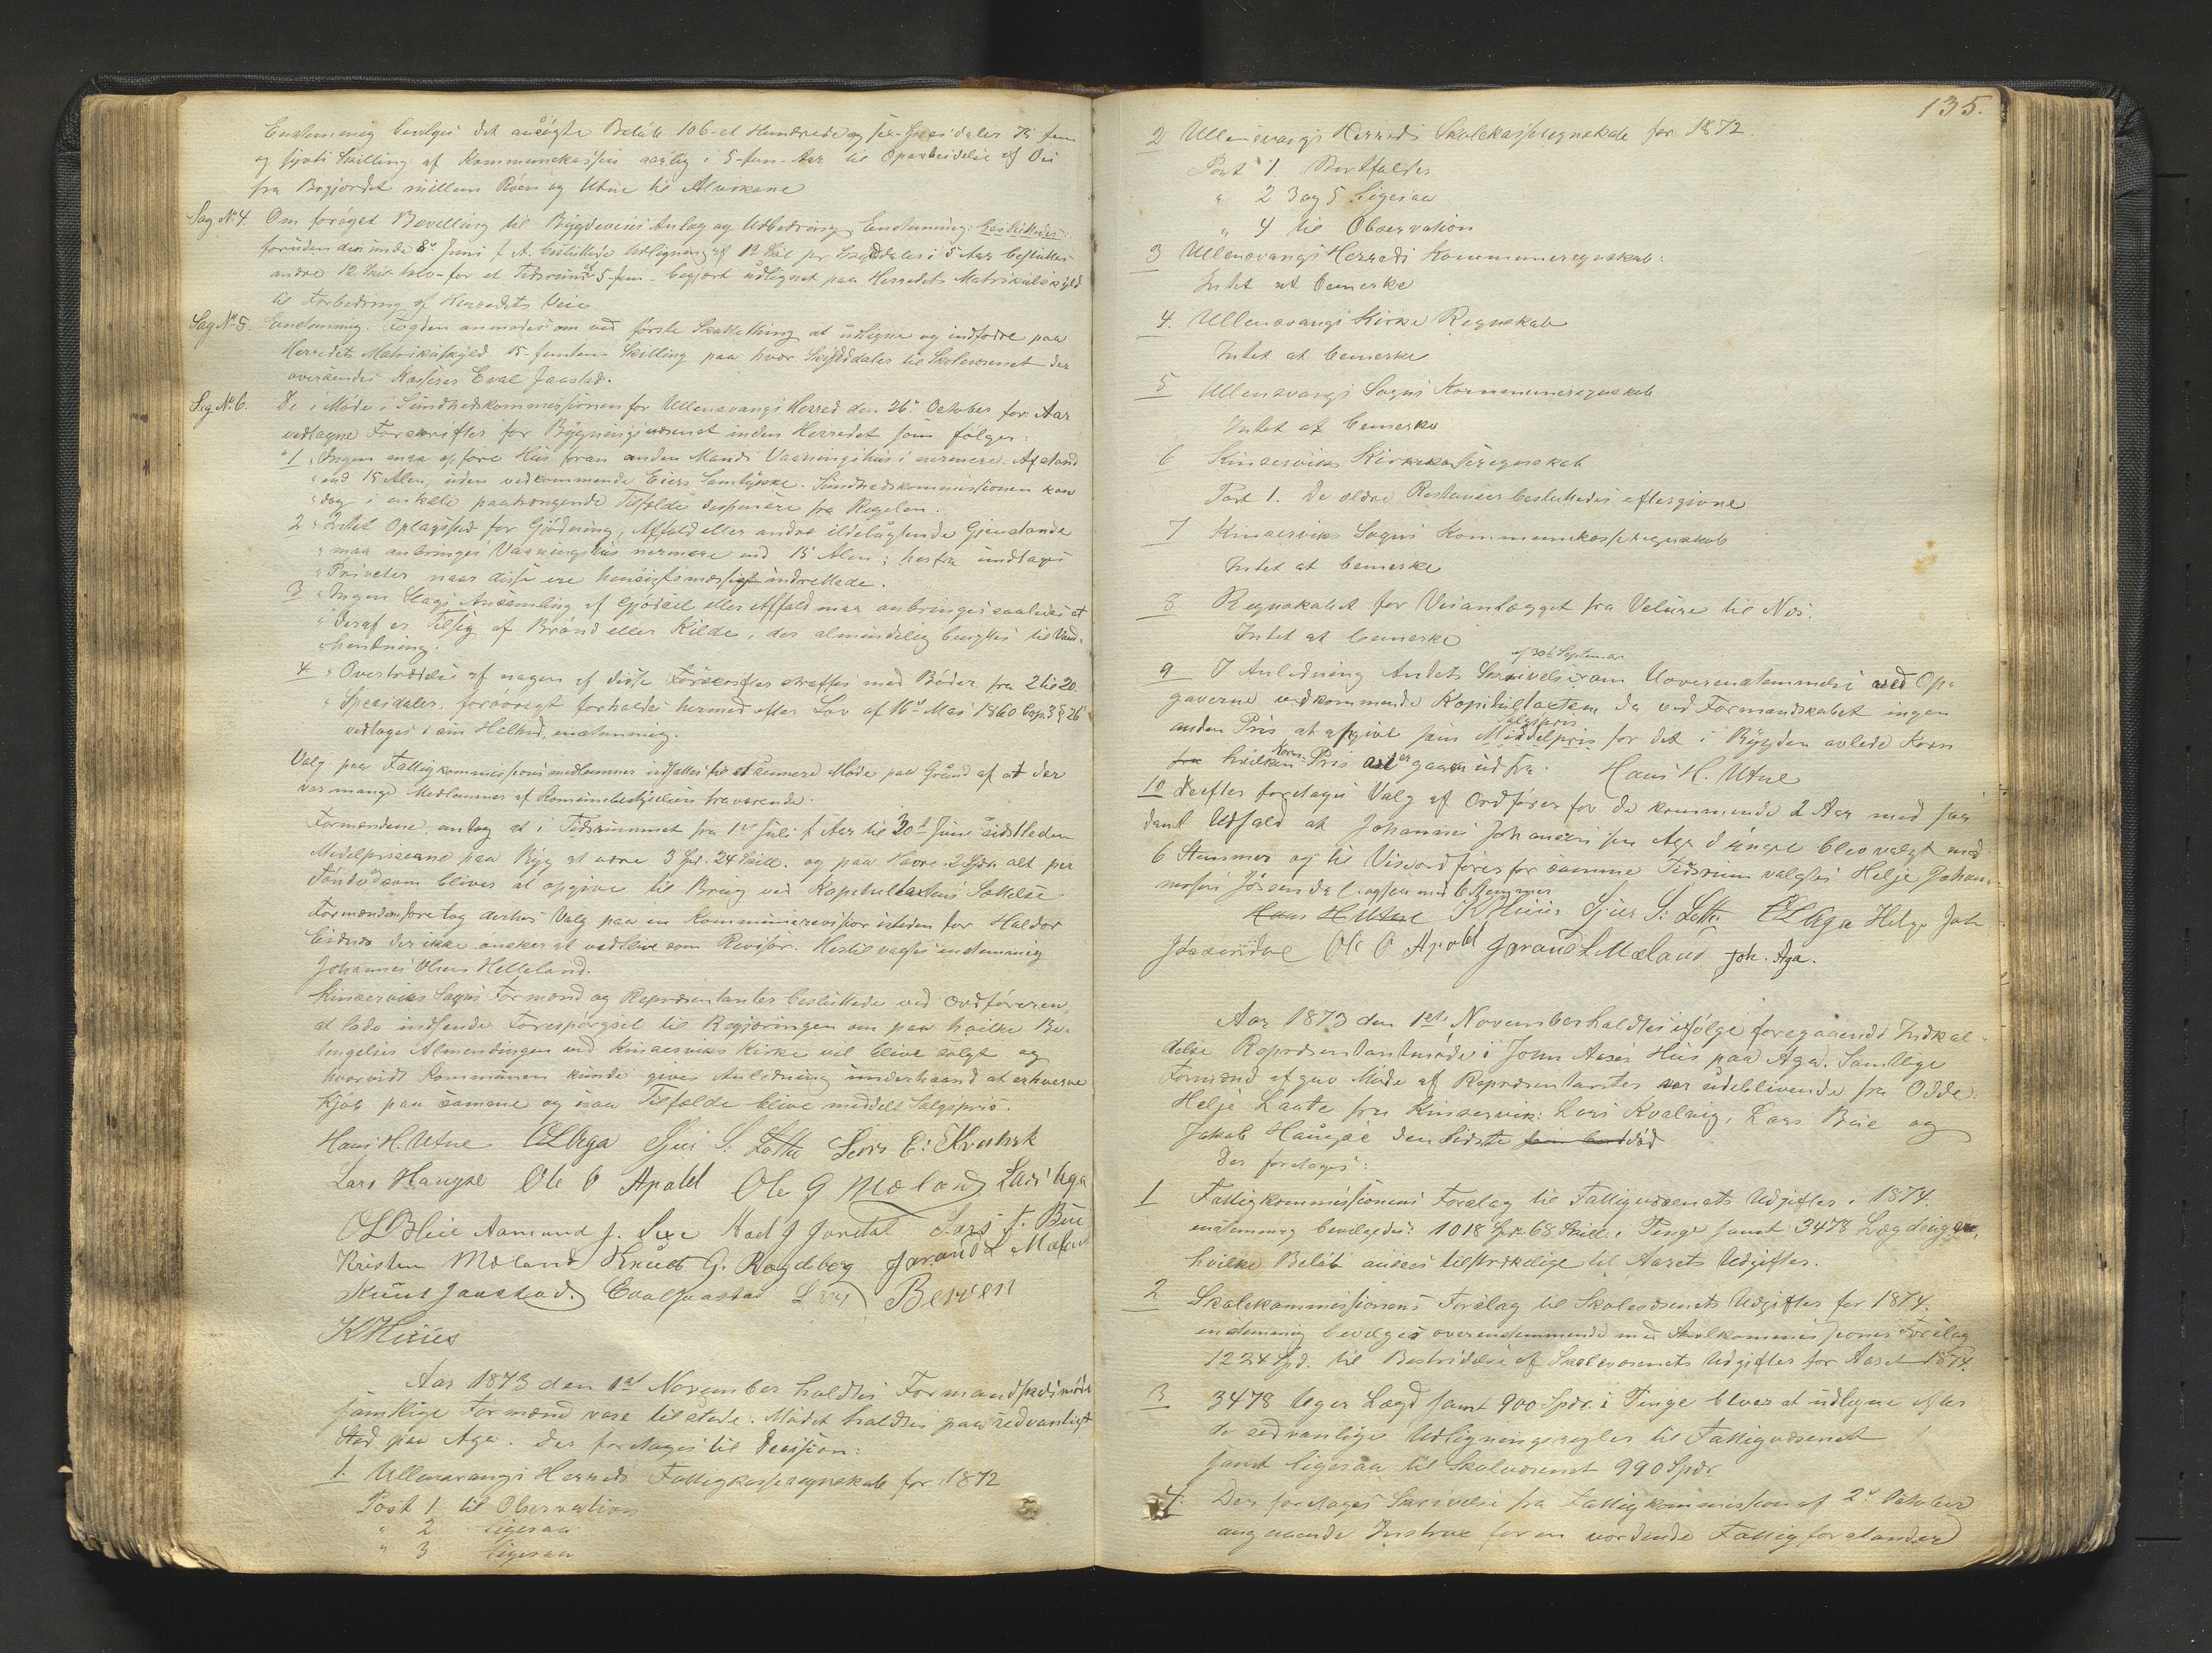 Enstemmig bevilges det ansøgte Beløb 106-et Hundrede og sex-Speсidaler 75 fem
og sytti Skilling af Kommunekassen aarlig i 5-fem-Aar til Oparbeidelse af Vei
fra Bygjordet millem Røen og Utne til Alvikane
Sag No 4. Om forøget Bevilling til Bygdeveies Anlæg og Udbedring. Enstemmig besluttedes:
foruden den under 8de Juni f. A. besluttede Udligning af 12 Skil pr Skylddaler i 5 Aar besluttes
andre 12 Skil. tolv-for et Tidsrum af 5-fem- begjært udlignet paa Herredets Matrikulskyld
til Forbedring af Herredets Veie
Sag No 5. Enstemmig. Fogden anmodes om ved første Skattething at udligne og indfordre paa
Herredets Matrikulskyld 15-femten Skilling paa hver Skylddaler til Skolevæsenet der
oversendes Kasserer Eval Jaastad.
Sag No 6. De i Møde i Sundhedskommissionen for Ullensvangs Herred den 26de October for. Aar
vedtagne Forskrifter for Bygningsvæsenet inden Herredet som følger:
1 Ingen maa opføre Hus foran anden Mands Vaaningshus i nærmere Afstand
end 15 Alen, uden vedkommende Eiers Samtykke. Sundhedskommissionen kan
dog i enkelte paatrængende Tilfælde dispensere fra Regelen.
2 Intet Oplagssted for Gjødning, Affald eller andre ildelugtende Gjenstande
maa anbringes Vaaningshus nærmere end 15 Alen; herfra undtages
Priveter naar disse ere hensigtsmæssigt indrettede.
3 Ingen Slags Ansamling af Gjødsel eller Affald maa anbringes saaledes at
deraf er Tilsig af Brønd eller Kilde, der almindelig benyttes til Vand-
hentning.
4 Overtrædelse af nogen af disse Forskrifter straffes med Bøder fra 2 til 20
Speсidaler. forøvrigt forholdes hermed efter Lov af 16de Mai 1860 Cap. 3 § 26
vedtages i sin Helhed, enstemmig.
Valg paa Fattigkommissions medlemmer udsattes til et senere Møde paa Grund af at der
var mange Medlemmer af Kommunebestyrelsen fraværende.
Formændene antog at i Tidsrummet fra 1ste Juli f Aar til 30te Juni sidstleden
Middelpriserne paa Byg at være 3 Spd. 24 Skill. og paa Havre 2 Spdr alt per
Tønde som bliver at opgive til Brug ved Kapitelstaxtens Sættelse.
Formænden foretog derhos Valg paa en Kommunerevisor isteden for Haldor
Eidnes der ikke ønsker at vedblive som Revisor. Hertil valgtes enstemmig
Johannes Olsen Helleland.
Kinservigs Sogns Formænd og Repræsentanter besluttede ved Ordføreren,
at lade indsende Forespørgsel til Regjeringen om paa hvilke Be-
tingelser Almendingen ved Kinservigs Kirke vil blive solgt og
hvorvidt Kommunen kunde gives Anledning underhaand at erhverve
Kjøb paa samme og isaa Tilfælde blive meddelt Salgspris.
Hans H. Utne OLAga Sjur S. Lotte Lars E: Kvestad
Lars Haugse Ole O Apold Ole G Moland Lars Aga
OLBleie Aamund J. Sexe Had J Jordal Lars J. Bue
Kristen Moland Knud G. Rogdeberg Jorand L Mæland
Knut Jaastad. Eval Jaastad L Berven
K Huus
Aar 1873 den 1st November holdtes Formandskabsmøde
samtlige Formænd vare tilstede. Mødet holdtes paa sedvanligt
Sted paa Aga. Der foretoges til Decision:
1. Ullensvangs Herreds Fattigkasseregnskab for 1872
Post 1 til Observation
" 2 ligesaa
" 3 ligesaa
135.
2 Ullensvangs Herreds Skolekasseregnskab for 1872.
Post 1. Bortfalder
" 2 3 og 5 ligesaa
" 4 til Observation
3 Ullensvangs Herreds Kommuneregnskab:
Intet at bemerke
4. Ullensvangs Kirke Regnskab
Intet at bemerke
5 Ullensvangs Sogns Kommuneregnskab
Intet at bemerke
6 Kinserviks Kirkekasseregnskab
Post 1. De ældre Restancer besluttedes eftergivne
7 Kinserviks Sogns Kommunekasseregnskab
Intet at bemerke
8 Regnskabet for Veianlægget fra Velure til Nes.
Intet at bemerke
af 30te September
9 I Anledning Amtets Skrivelse om Uoverenstemmelse ved Op-
gaverne vedkommende Kapitelstaxten da ved Formandskabet ingen
Salgspris
anden Pris at opgive som Middelpris for det i Bygden avlede Korn
fra hvilken Korn-Pris er gaaen ud fra. Hans H. Utne
10 Derefter foretoges Valg af Ordfører for de kommende 2 Aar med saa-
dant Udfald at Johannes Johannessen Aga d yngre blev valgt med
6 Stemmer og til Viseordfører for samme Tidsrum valgtes Helje Johan-
nessen Jøsendal. ogsaa med 6 Stemmer
Hans H Utne K Huus Sjur S. Lotte OLAga Helge Joh
Jøsendal Ole O Apold Jorand L Mæland Joh. Aga.
Aar 1873 den 1ste November holdtes ifølge foregaaende Indkal-
delse Repræsentantmøde i John Agas Hus paa Aga. Samtlige
Formænd afgav Møde af Repræsentanter var udeblivende fra Odde:
Helje Laate fra Kinservik: Lars Kvalvig, Lars Bue og
Jakob Haugse den sidste død
Der foretoges:
1 Fattigkommissionens Forslag til Fattigvæsenets Udgifter i 1874.
enstemmig bevilgedes: 1018 Spd. 68 Skill. i Penge samt 3478 Lægdsuger,
hvilke Beløb ansees tilstrækkelige til Aarets Udgifter.
2 Skolekommissionens Forslag til Skolevæsenets Udgifter for 1874.
enstemmig bevilges overenstemmende med Skolkommissionens Forslag
1224 Spd. til Bestridelse af Skolevæsenets Udgifter for Aaret 1874.
3 3478 Uger Lægd samt 900 Spdr. i Penge bliver at udligne efter
de sedvanlige Udligningsregler til Fattigvæsenet
samt ligesaa til Skolevæsenet 990 Spdr
4. Der foretoges Skrivelse fra Fattigkommission af 2de Oktober
angaaende Instrux for en vordende Fattigforstander